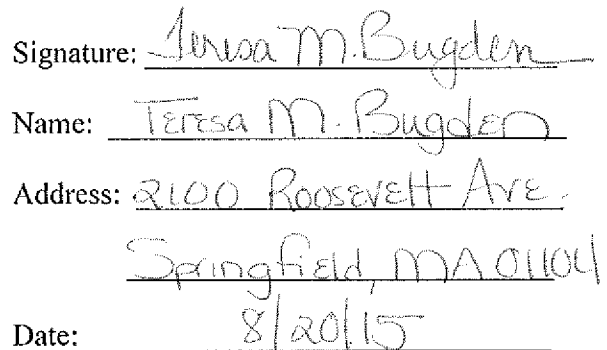 Signature: Teresa M. Bugden
Name: Teresa M. Bugden
Address: 2100 Roosevelt Ave.
Springfield, MA 01104
Date: 8/20/15